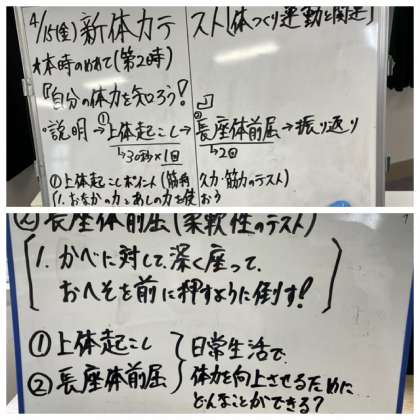 4/15(金)新体力テスト[体つくり運動と関連]
*本時のめあて(第2時)
『自分の体力を知ろう!』
・説明→①上体起こし→②長座体前屈→振り返り
↳30秒×1回 ↳2回
①上体起こしポイント(筋持久力・筋力のテスト)
(1.おなかの力とあしの力を使おう
②長座体前屈(柔軟性のテスト)
1.かべに対して、深く座って、
おへそを前に押すように倒す!
①上体起こし
②長座体前屈
日常生活で、
体力を向上させるために
どんなことができる?